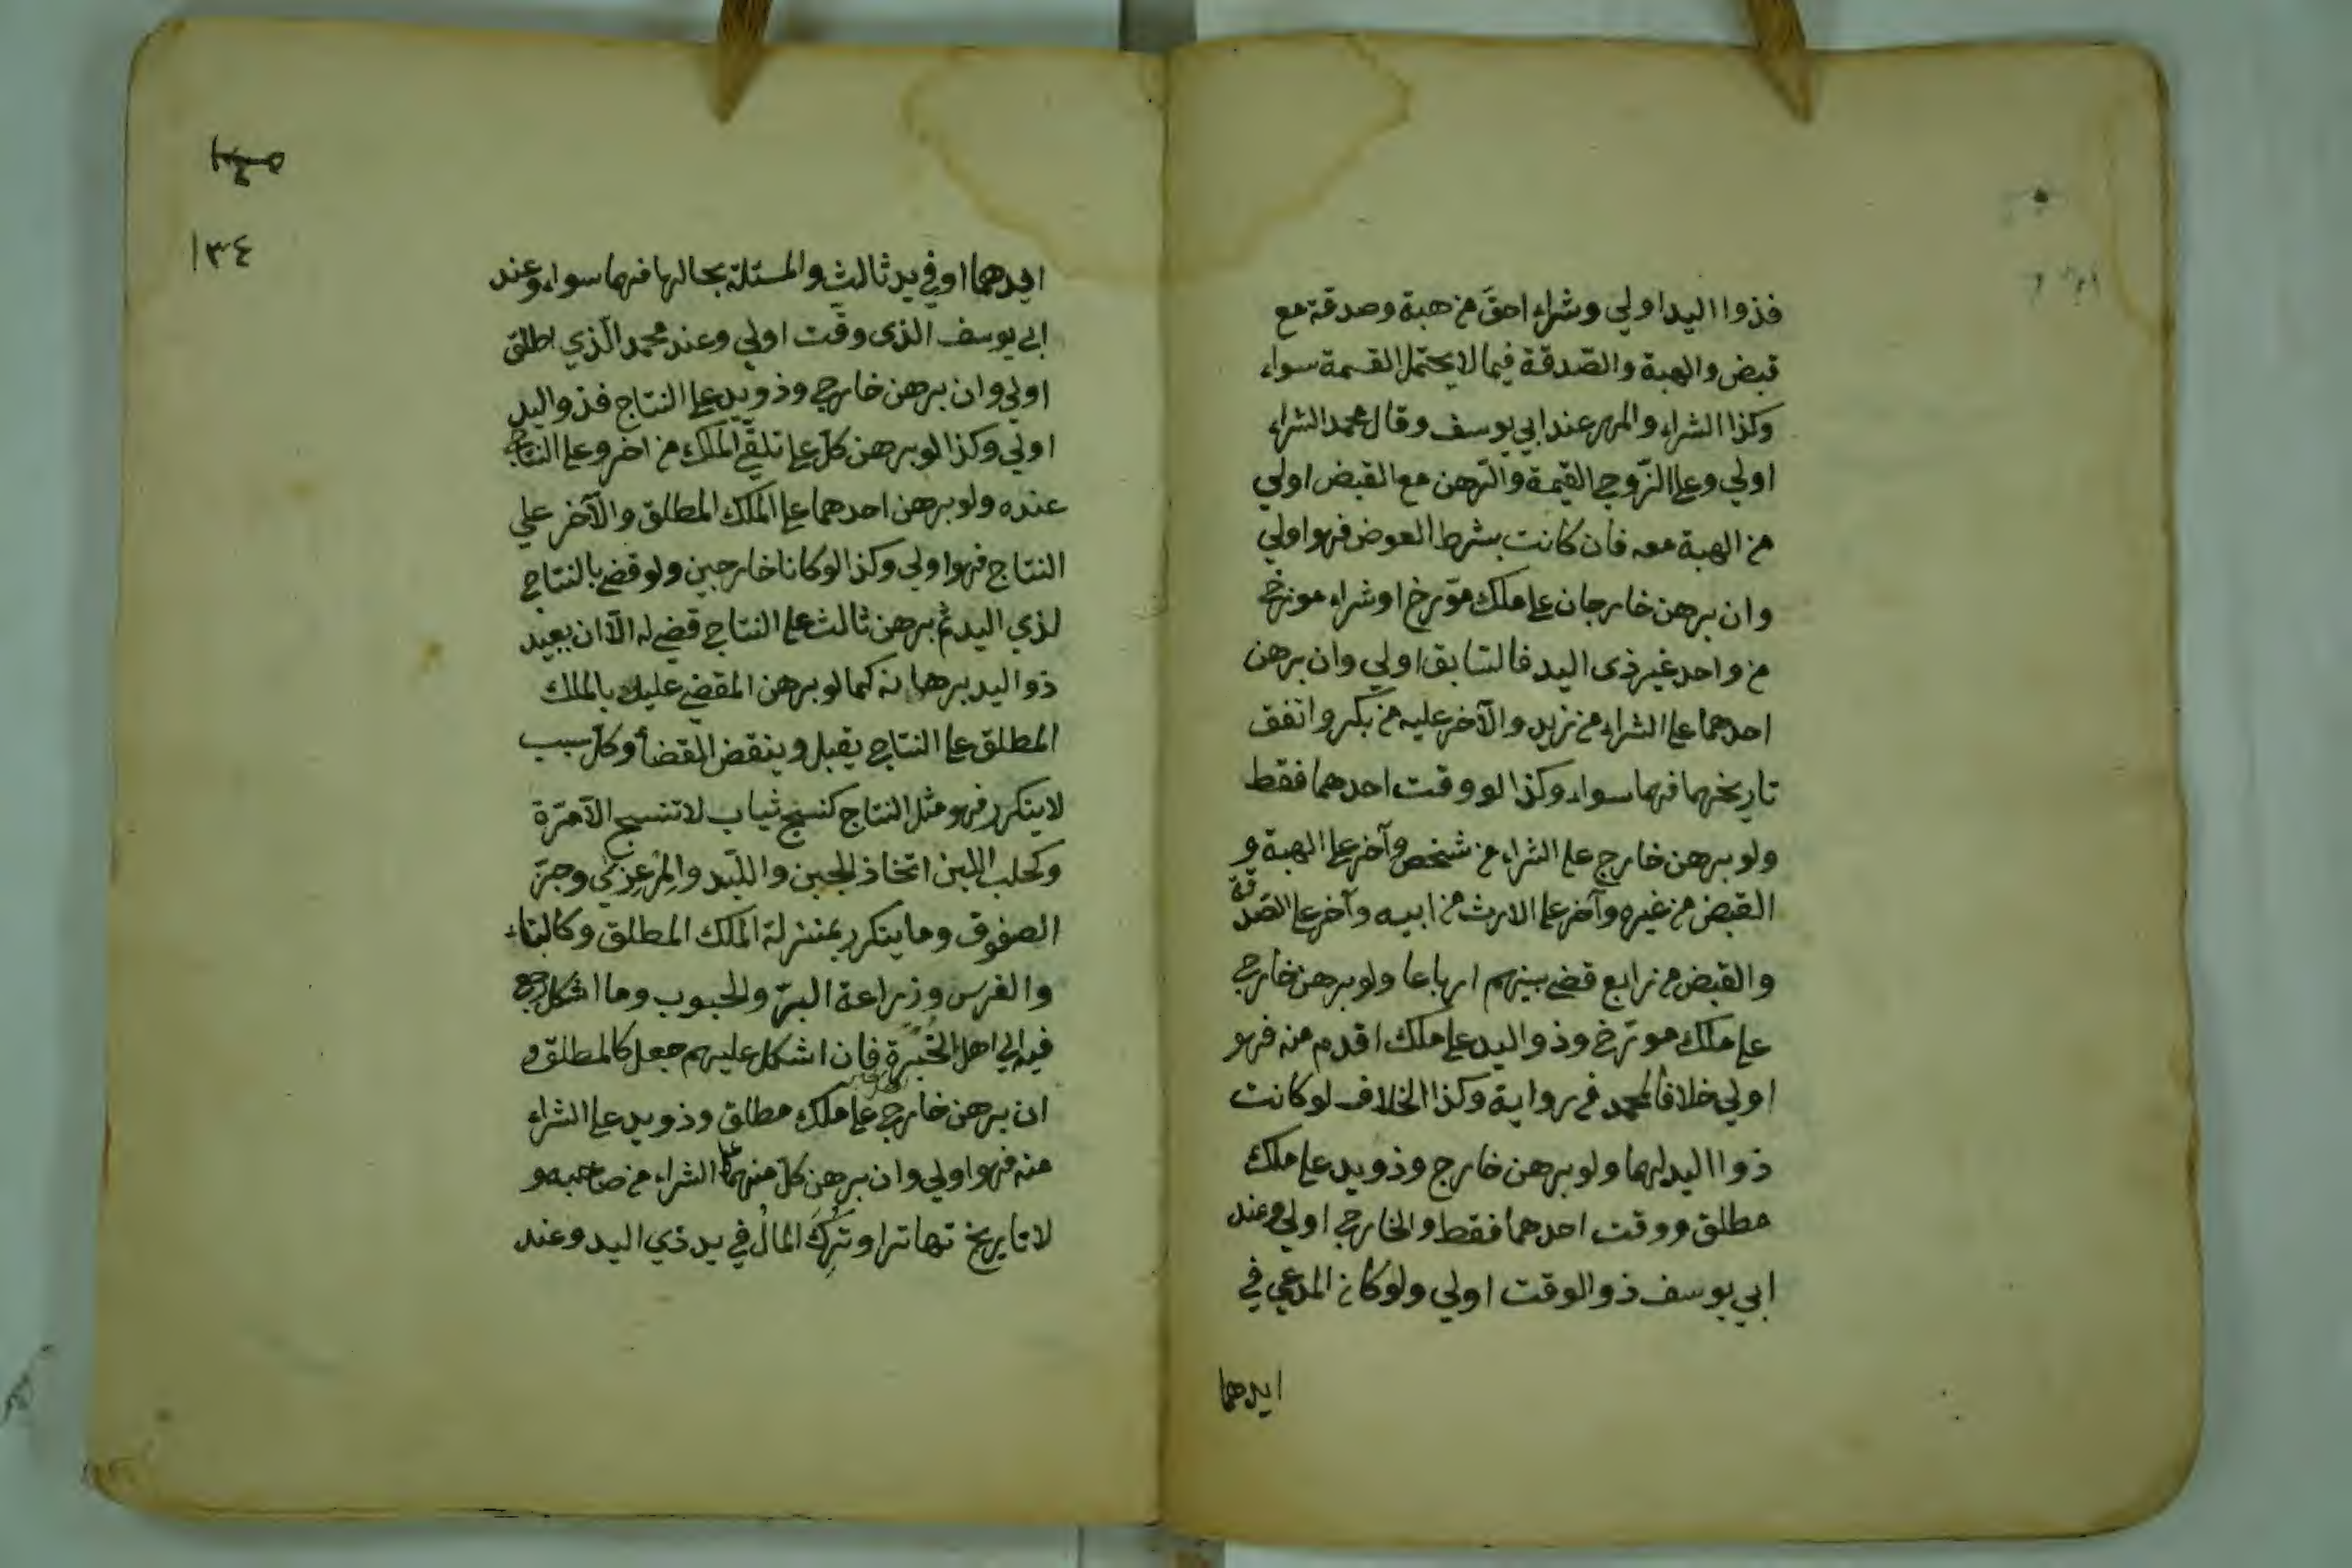 فذوا اليد اولي وشراء احقّ من هبة وصدقة مع
قبض والهبة والصّدقة فيما لا يحتمل القسمة سواء
وكذا الشراء والمهر عند ابي يوسف وقال محمد الشراء
اولي وعلي الزّوج القيمة والرّهن مع القبض اولي
من الهبة معه فان كانت بشرط العوض فهو اولي
وان برهن خارجان علي ملك مؤرخ او شراء مورخ
من واحد غير ذى اليد فالسّابق اولي وان برهن
احدهما علي الشراء من زيد والآخر عليه من بكر واتفق
تاريخهما فهما سواء وكذا لو وقت احدهما فقط
ولو برهن خارج علي الشراء من شخص وآخر علي الهبة و
القبض من غيره وآخر علي الارث من ابيه وآخر علي الصّدقة
والقبض من رابع قضي بينهم ارباعا ولو برهن خارج
علي ملك مورّخ وذو اليد علي ملك اقدم منه فهو
اولي خلافاً لمحمد في رواية وكذا الخلاف لو كانت
ذوا اليد لهما ولو برهن خارج وذو يد علي ملك
مطلق ووقت احدهما فقط والخارج اولي وعند
ابي يوسف ذو الوقت اولي ولو كان المدعي في
ايدهما
١٣٤
ايدهما او في يد ثالث والمسئلة بحالها فهما سواء وعند
ابي يوسف الذى وقّت اولي وعند محمد الّذي اطلق
اولي وان برهن خارج وذو يد علي النتاج فذو اليد
اولي وكذا لو برهن كلّ علي تلقّي الملك من اخر وعلي النتاج
عنده ولو برهن احدهما علي الملك المطلق والآخر علي
النتاج فهو اولي وكذا لو كانا خارجين ولو قضي بالنتاج
لذي اليد ثم برهن ثالث علي النتاج قضي له الّا ان يعيد
ذو اليد برهانه كما لو برهن المقضي عليه بالملك
المطلق علي النتاج يقبل وينقض القضأ وكلّ سبب
لا يتكرر فهو مثل النتاج كنسج ثياب لا تنسج الّا مرّة
وكحلب اللبن اتخاذ الجبن واللّبد والمِرْعِزّي وجزّ
الصفوف وما يتكرر بمنزلة الملك المطلق وكالبناء
والغرس وزراعة البرّ والحبوب وما اشكل رجع
فيه الي اهل الخُبرة فان اشكل عليهم جعل كالمطلق و
ان برهن خارج علي ملك مطلق وذو يد علي الشراء
منه فهو اولي وان برهن كلّ منهما علي الشراء من صاحبه و
لا تاريخ تهاترا وتُرِكَ المالُ في يد ذي اليد وعند